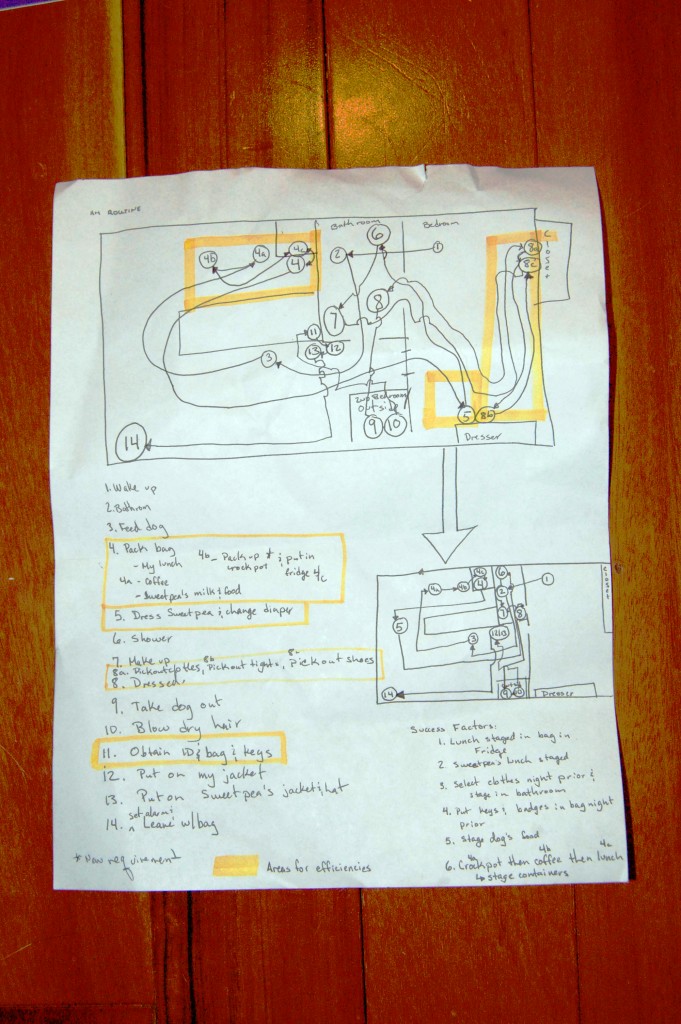 AM ROUTINE
Bathroom
Bedroom
Closet
6
4b
4a
4c
4
2
1
8a
8c
7
8
11
13
12
3
Outside
5
8b
9
10
14
Dresser
1. Wake up
2. Bathroom
3. Feed dog
4. Pack bag
- My lunch
4a - Coffee
- Sweetpea's milk & food
4b - Pack up & put in
crockpot
fridge 4c
5. Dress Sweetpea & change diaper
6. Shower
7. Make up
8a. Pickout clothes, 8b Pickout tights, 8c Pickout shoes
8. Dresser
9. Take dog out
10. Blow dry hair
11. Obtain ID & bag & keys
12. Put on my jacket
13. Put on Sweetpea's jacket & hat
14. set alarm & Leave w/bag
* New requirement
Areas for efficiencies
4c
6
4a
4b
4
2
1
7
8
5
3
12
13
14
9
10
Closet
Dresser
Success Factors:
1. Lunch staged in bag in
Fridge
2 Sweetpea's lunch staged
3. Select clothes night prior &
stage in bathroom
4. Put keys & badges in bag night
prior
5. Stage dog's food
6. 4a Crockpot then 4b coffee then 4c lunch
↳ stage containers